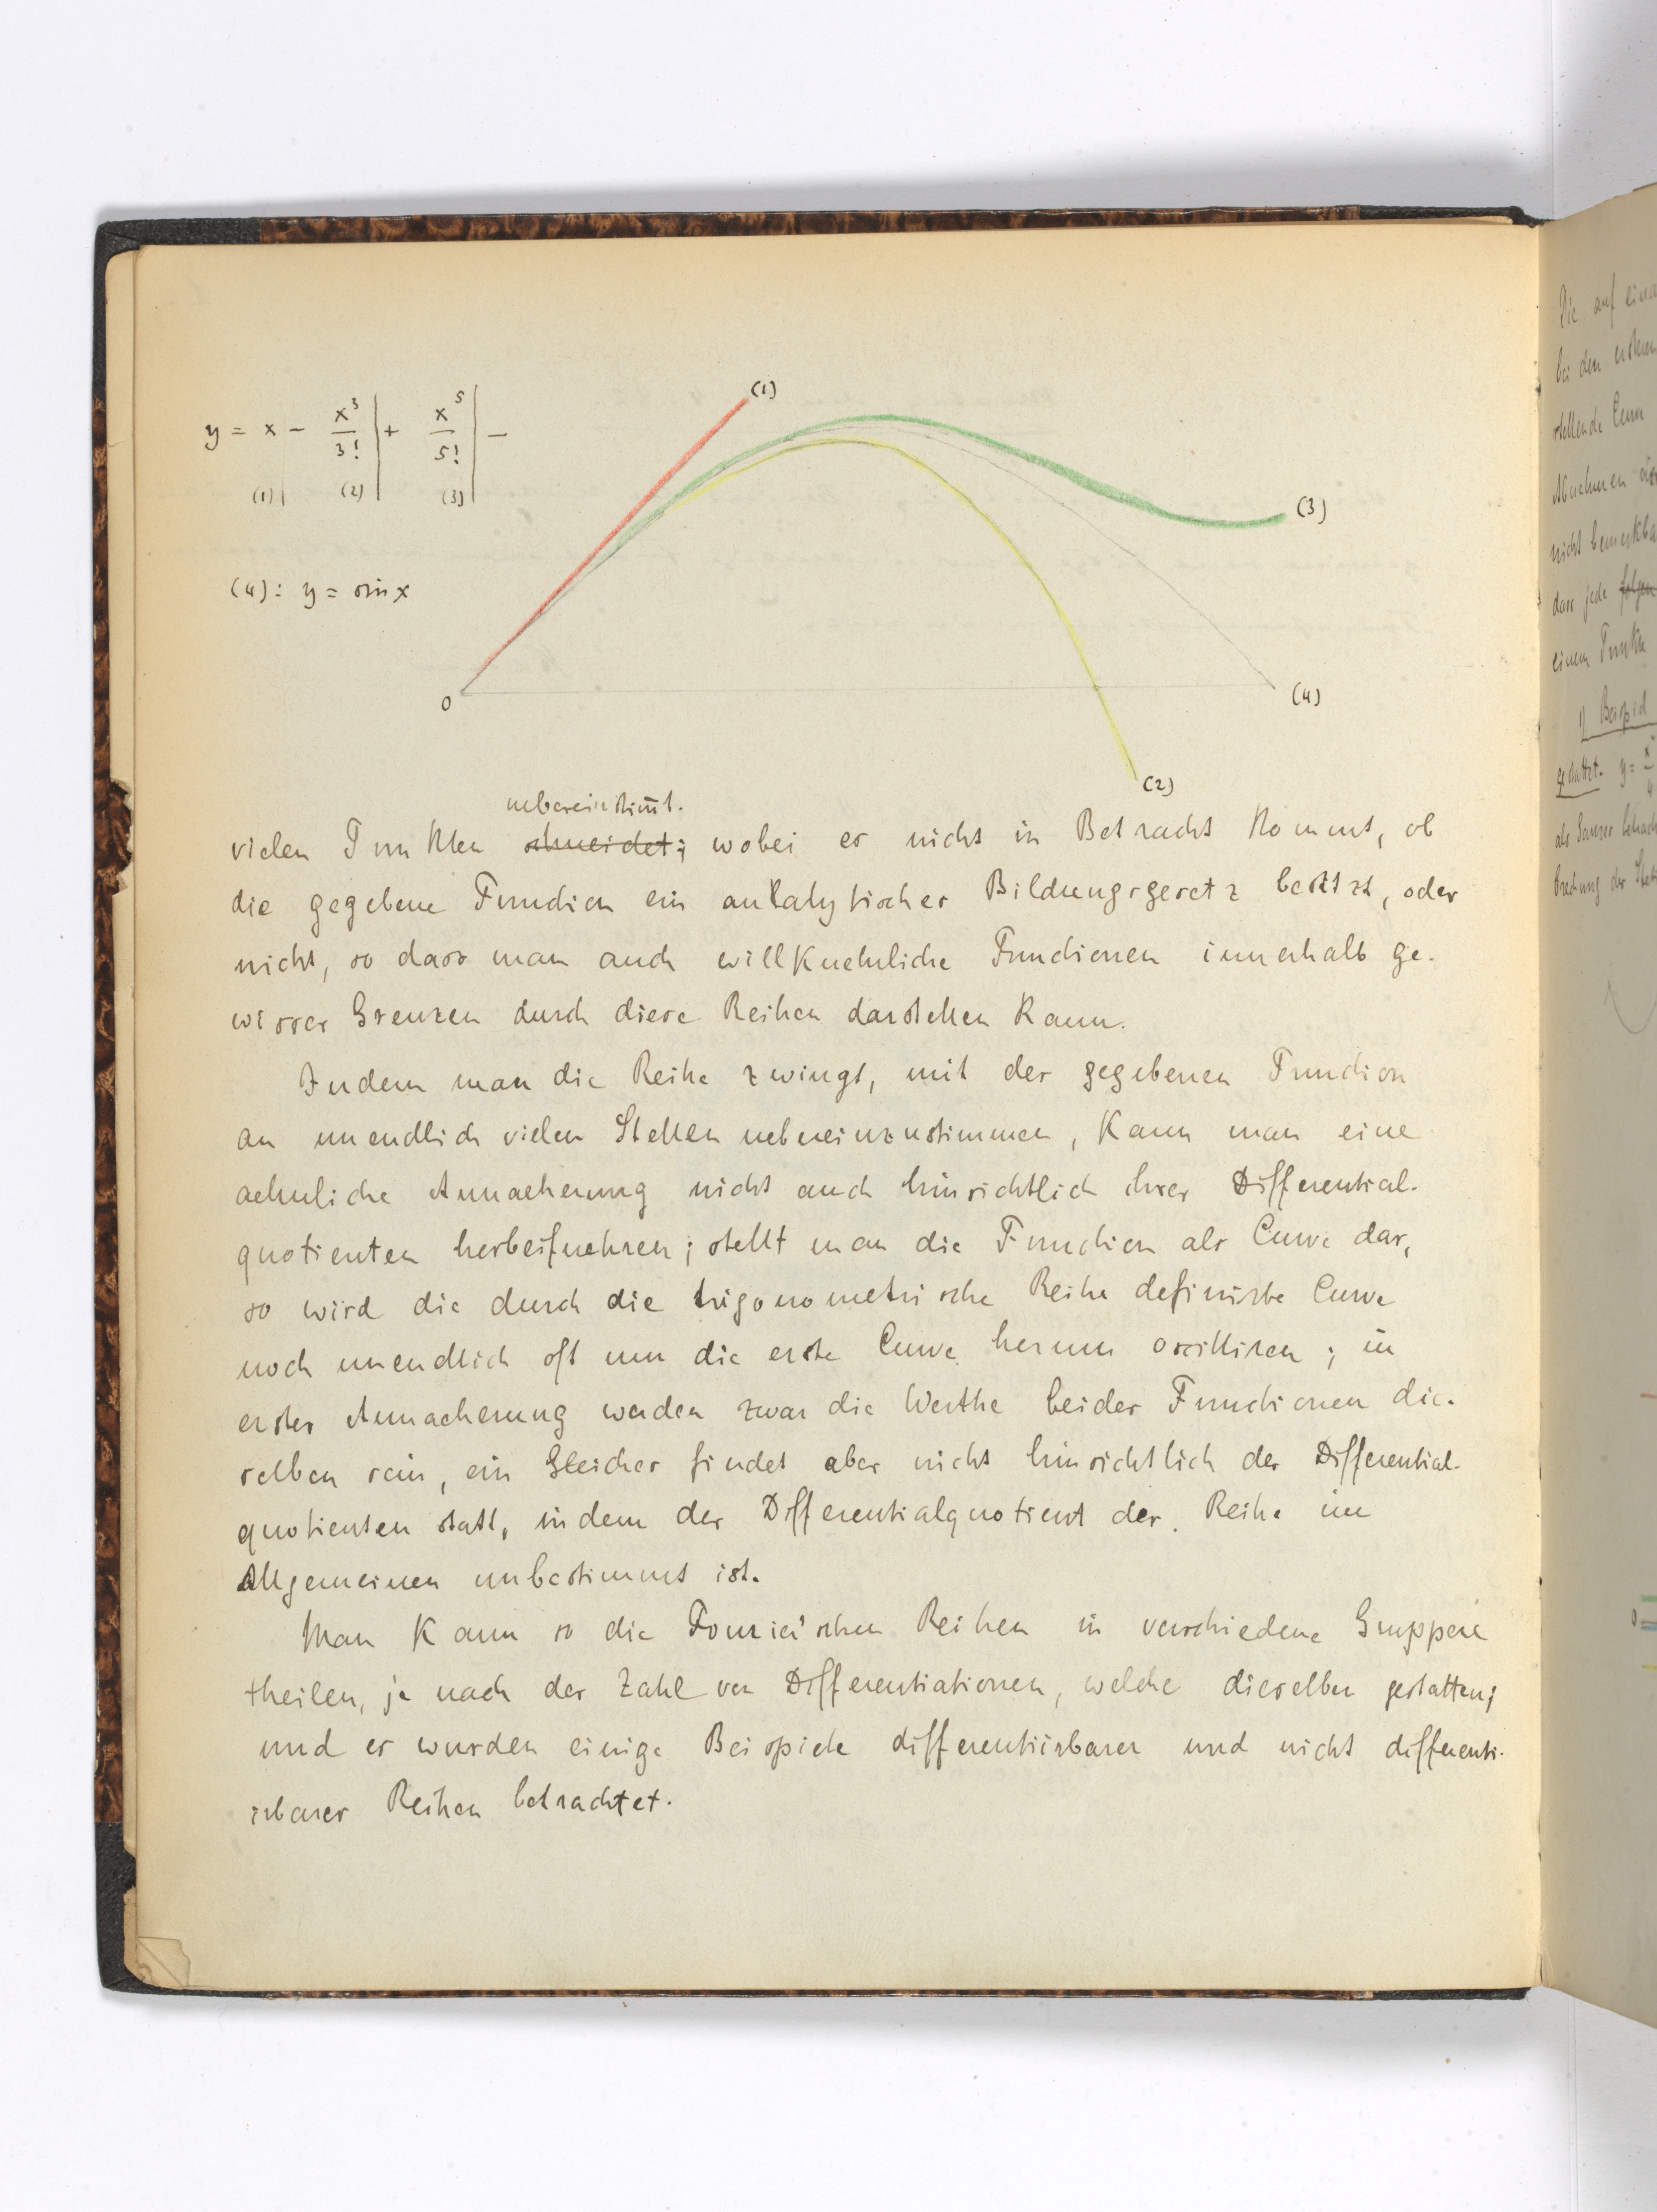 y = x - x³/3! | + x⁵/5! | -
(1)| (2)| (3)|
(4): y = sin x
(1)
(3)
0
(4)
(2)
uebereinstim̄t.
vielen Punkten schneidet; wobei es nicht in Betracht kommt, ob
die gegebene Function ein analytisches Bildungsgesetz besitzt, oder
nicht, so dass man auch willkuehrliche Functionen innerhalb ge-
wisser Grenzen durch diese Reihen darstellen kann.
Indem man die Reihe zwingt, mit der gegebenen Function
an unendlich vielen Stellen uebereinzustimmen, kann man eine
aehnliche Annaeherung nicht auch hinsichtlich ihrer Differential-
quotienten herbeifuehren; stellt man die Function als Curve dar,
so wird die durch die trigonometrische Reihe definirte Curve
noch unendlich oft um die erste Curve herum oscilliren; in
erster Annaeherung werden zwar die Werthe beider Functionen die-
selben sein, ein Gleiches findet aber nicht hinsichtlich der Differential-
quotienten statt, indem der Differentialquotient der Reihe im
Allgemeinen unbestimmt ist.
Man kann so die Fourier'schen Reihen in verschiedene Gruppen
theilen, je nach der Zahl von Differentiationen, welche dieselben gestatten;
und es wurden einige Beispiele differentiirbarer und nicht differenti-
irbarer Reihen betrachtet.
Die auf
bei den ersteren
stellende Curve
Abnehmen
nicht bemerkba
dass jede folgen
einem Punkte
1) Beispiel
gestattet. y =
als Ganzes betrach
Brechung der